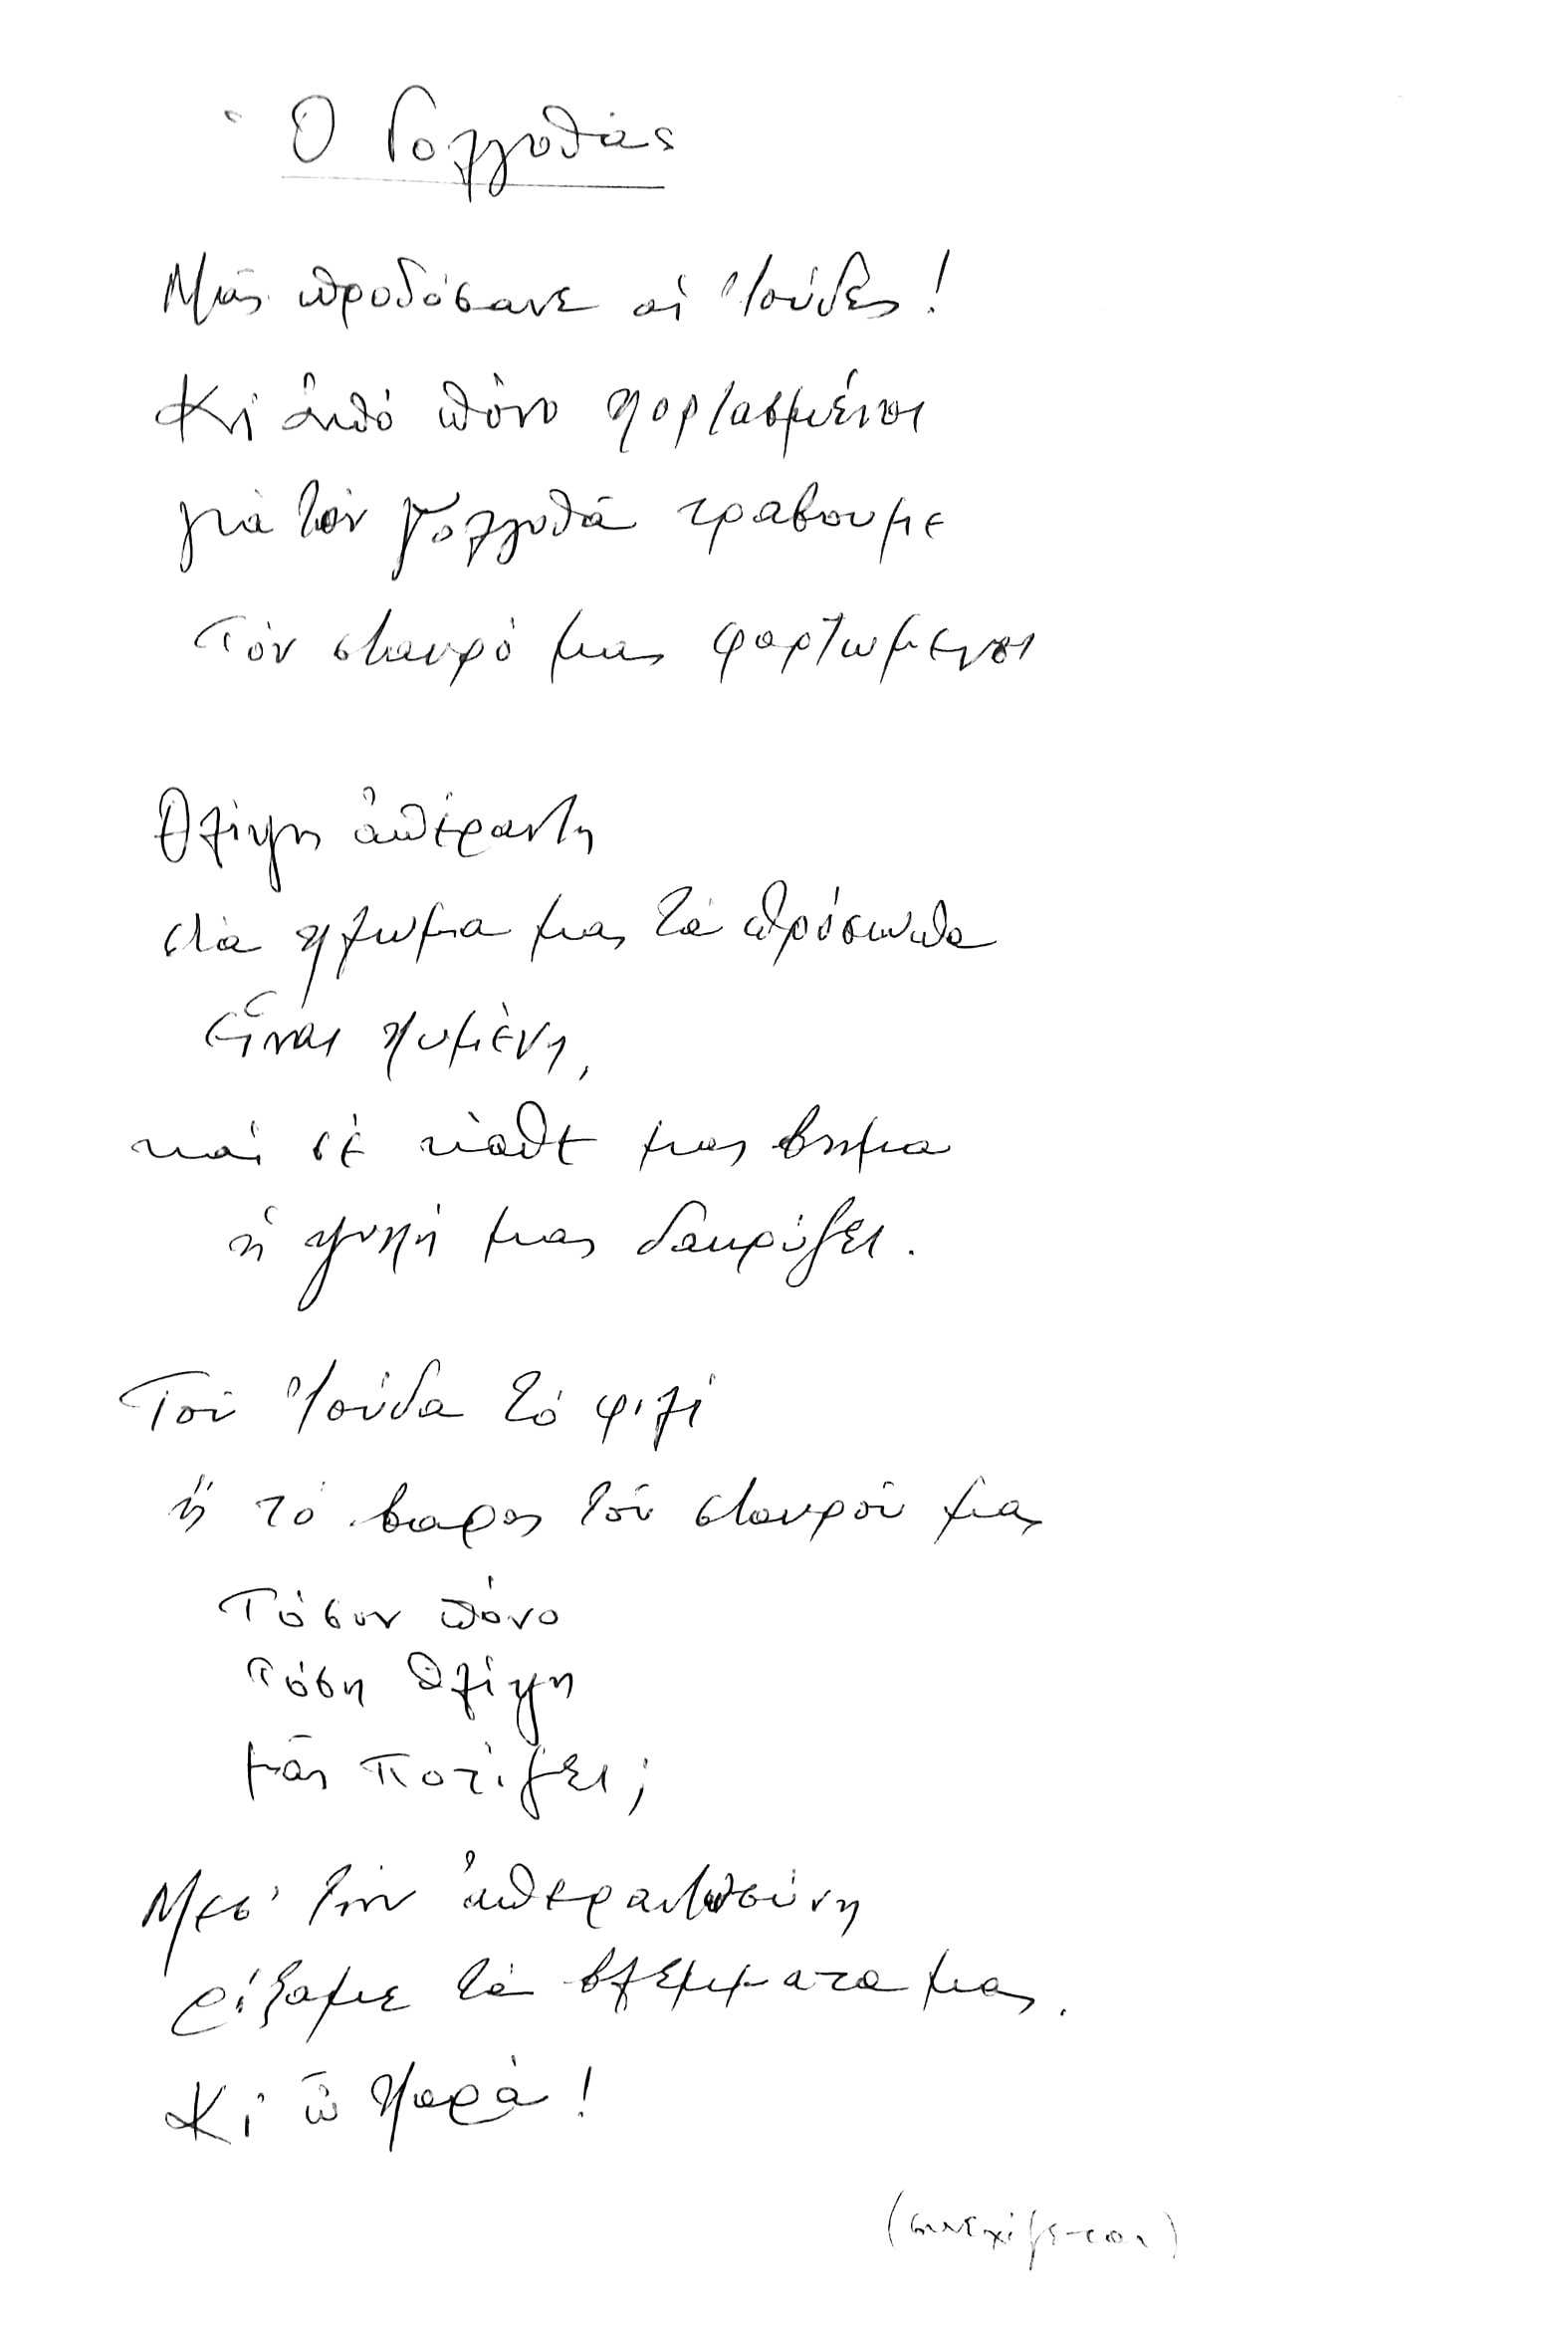 Ὁ Γολγοθᾶς
Μᾶς προδόσανε οἱ Ἰούδες!
Κι ἀπό πόνο χορτασμένοι
γιά τόν Γολγοθᾶ τραβουμε
Τόν σταυρό μας φορτωμενοι
Θλίψη ἀπέραντη
στά χλωμα μας τά πρόσωπα
εἶναι χυμένη,
καί σέ κάθε μας βημα
ἡ ψυχή μας δακρύζει.
Τοῦ Ἰούδα τό φιλί
ἤ τό βαρος τοῦ σταυροῦ μας
Τόσον πόνο
Τόση θλίψη
μᾶς ποτίζει;
Μεσ' τήν ἀπεραντωσύνη
ρίξαμε τά βλεμματα μας.
Κι ὦ χαρά!
(συνεχίζεται)